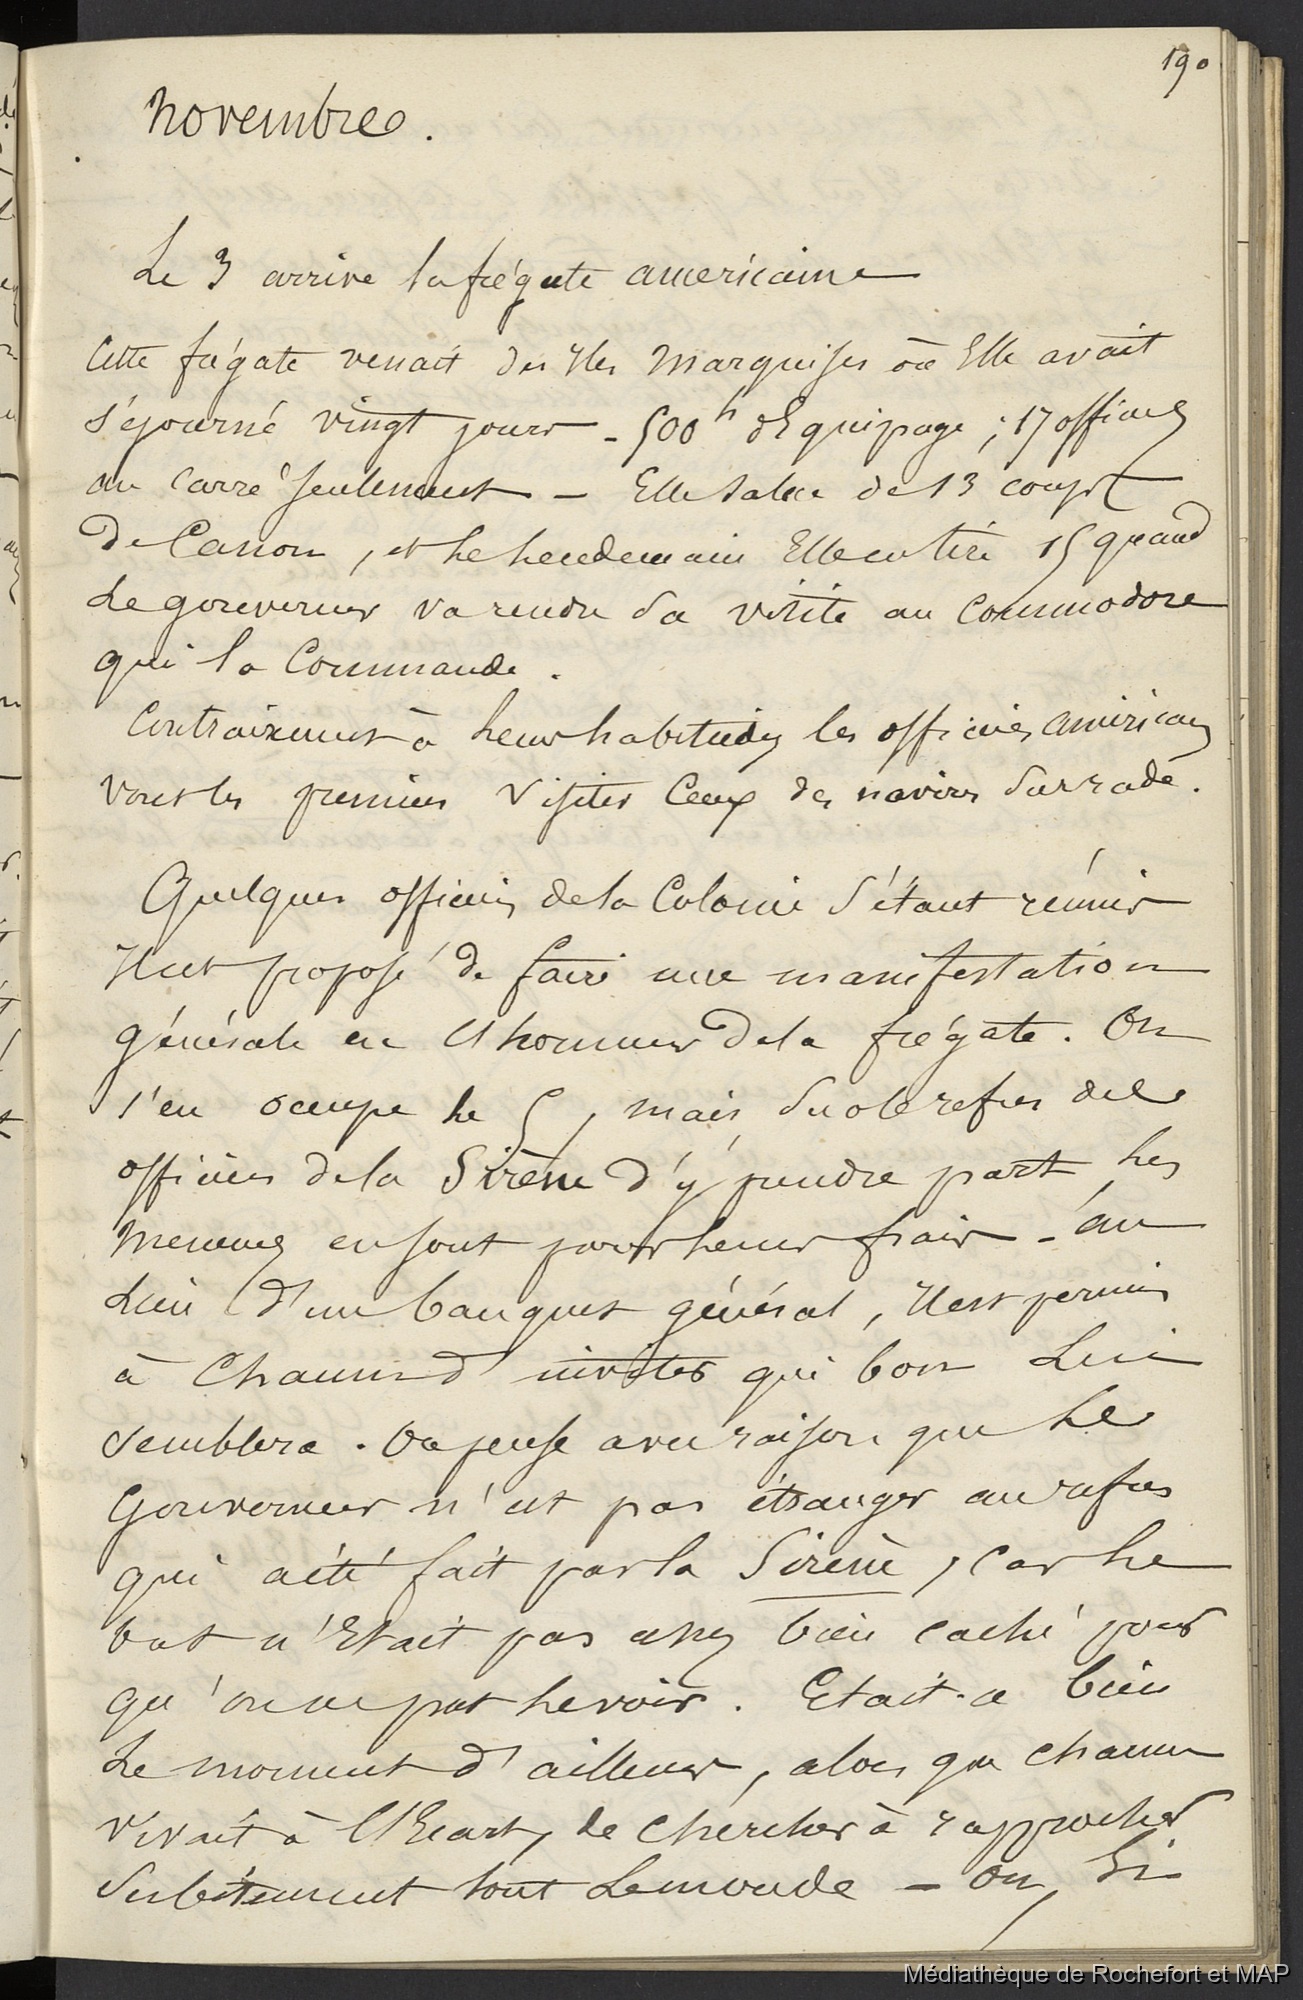 190
novembre.
Le 3 arrive la frégate americaine
Cette frégate venait des Iles Marquises où Elle avait
séjourné vingt jours - 500 h d'Equipage ; 17 officiers
au Carré seulement - Elle salue de 13 coups
de Canon, et le lendemain Elle en tire 15 quand
Le gouverneur va rendre sa visite au Commodore
qui la Commande.
Contrairement à leurs habitudes les officiers américains
vont les premiers visiter Ceux des navires sur rade.
Quelques officiers de la Colonie s'étant réunis
Il est proposé de faire une manifestation
générale en l'honneur de la frégate. On
s'en occupe le 5, mais du le refus des
officiers de la Sirène d'y prendre part les
meneurs en sont pour leurs frais - au
Lieu d'un banquet général, Il est permis
à Chacun d'inviter qui bon Lui
Semblera. On pense avec raison que Le
Gouverneur n'est pas étranger au refus
qui a été fait par la Sirène, car le
but n'Etait pas assez bien caché pour
qu'on ne put le voir. Etait-ce bien
Le moment d'ailleurs, alors que chacun
vivait à l'Ecart, de chercher à rapprocher
Subitement tout Le monde - on, Si
Médiathèque de Rochefort et MAP